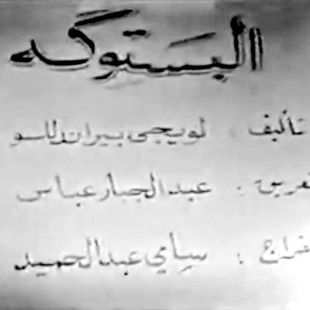 البستوگه
تأليف : لويجي بيراندللسو
تعريق : عبدالجبار عباس
اخراج : سامي عبدالحميد